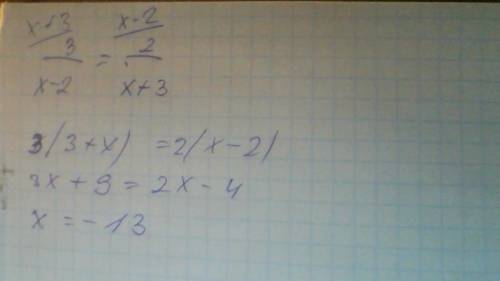 x+3/ x-2/
3 = 2
x-2 x+3
3(3+x) =2(x-2)
3x+9=2x-4
x=-13